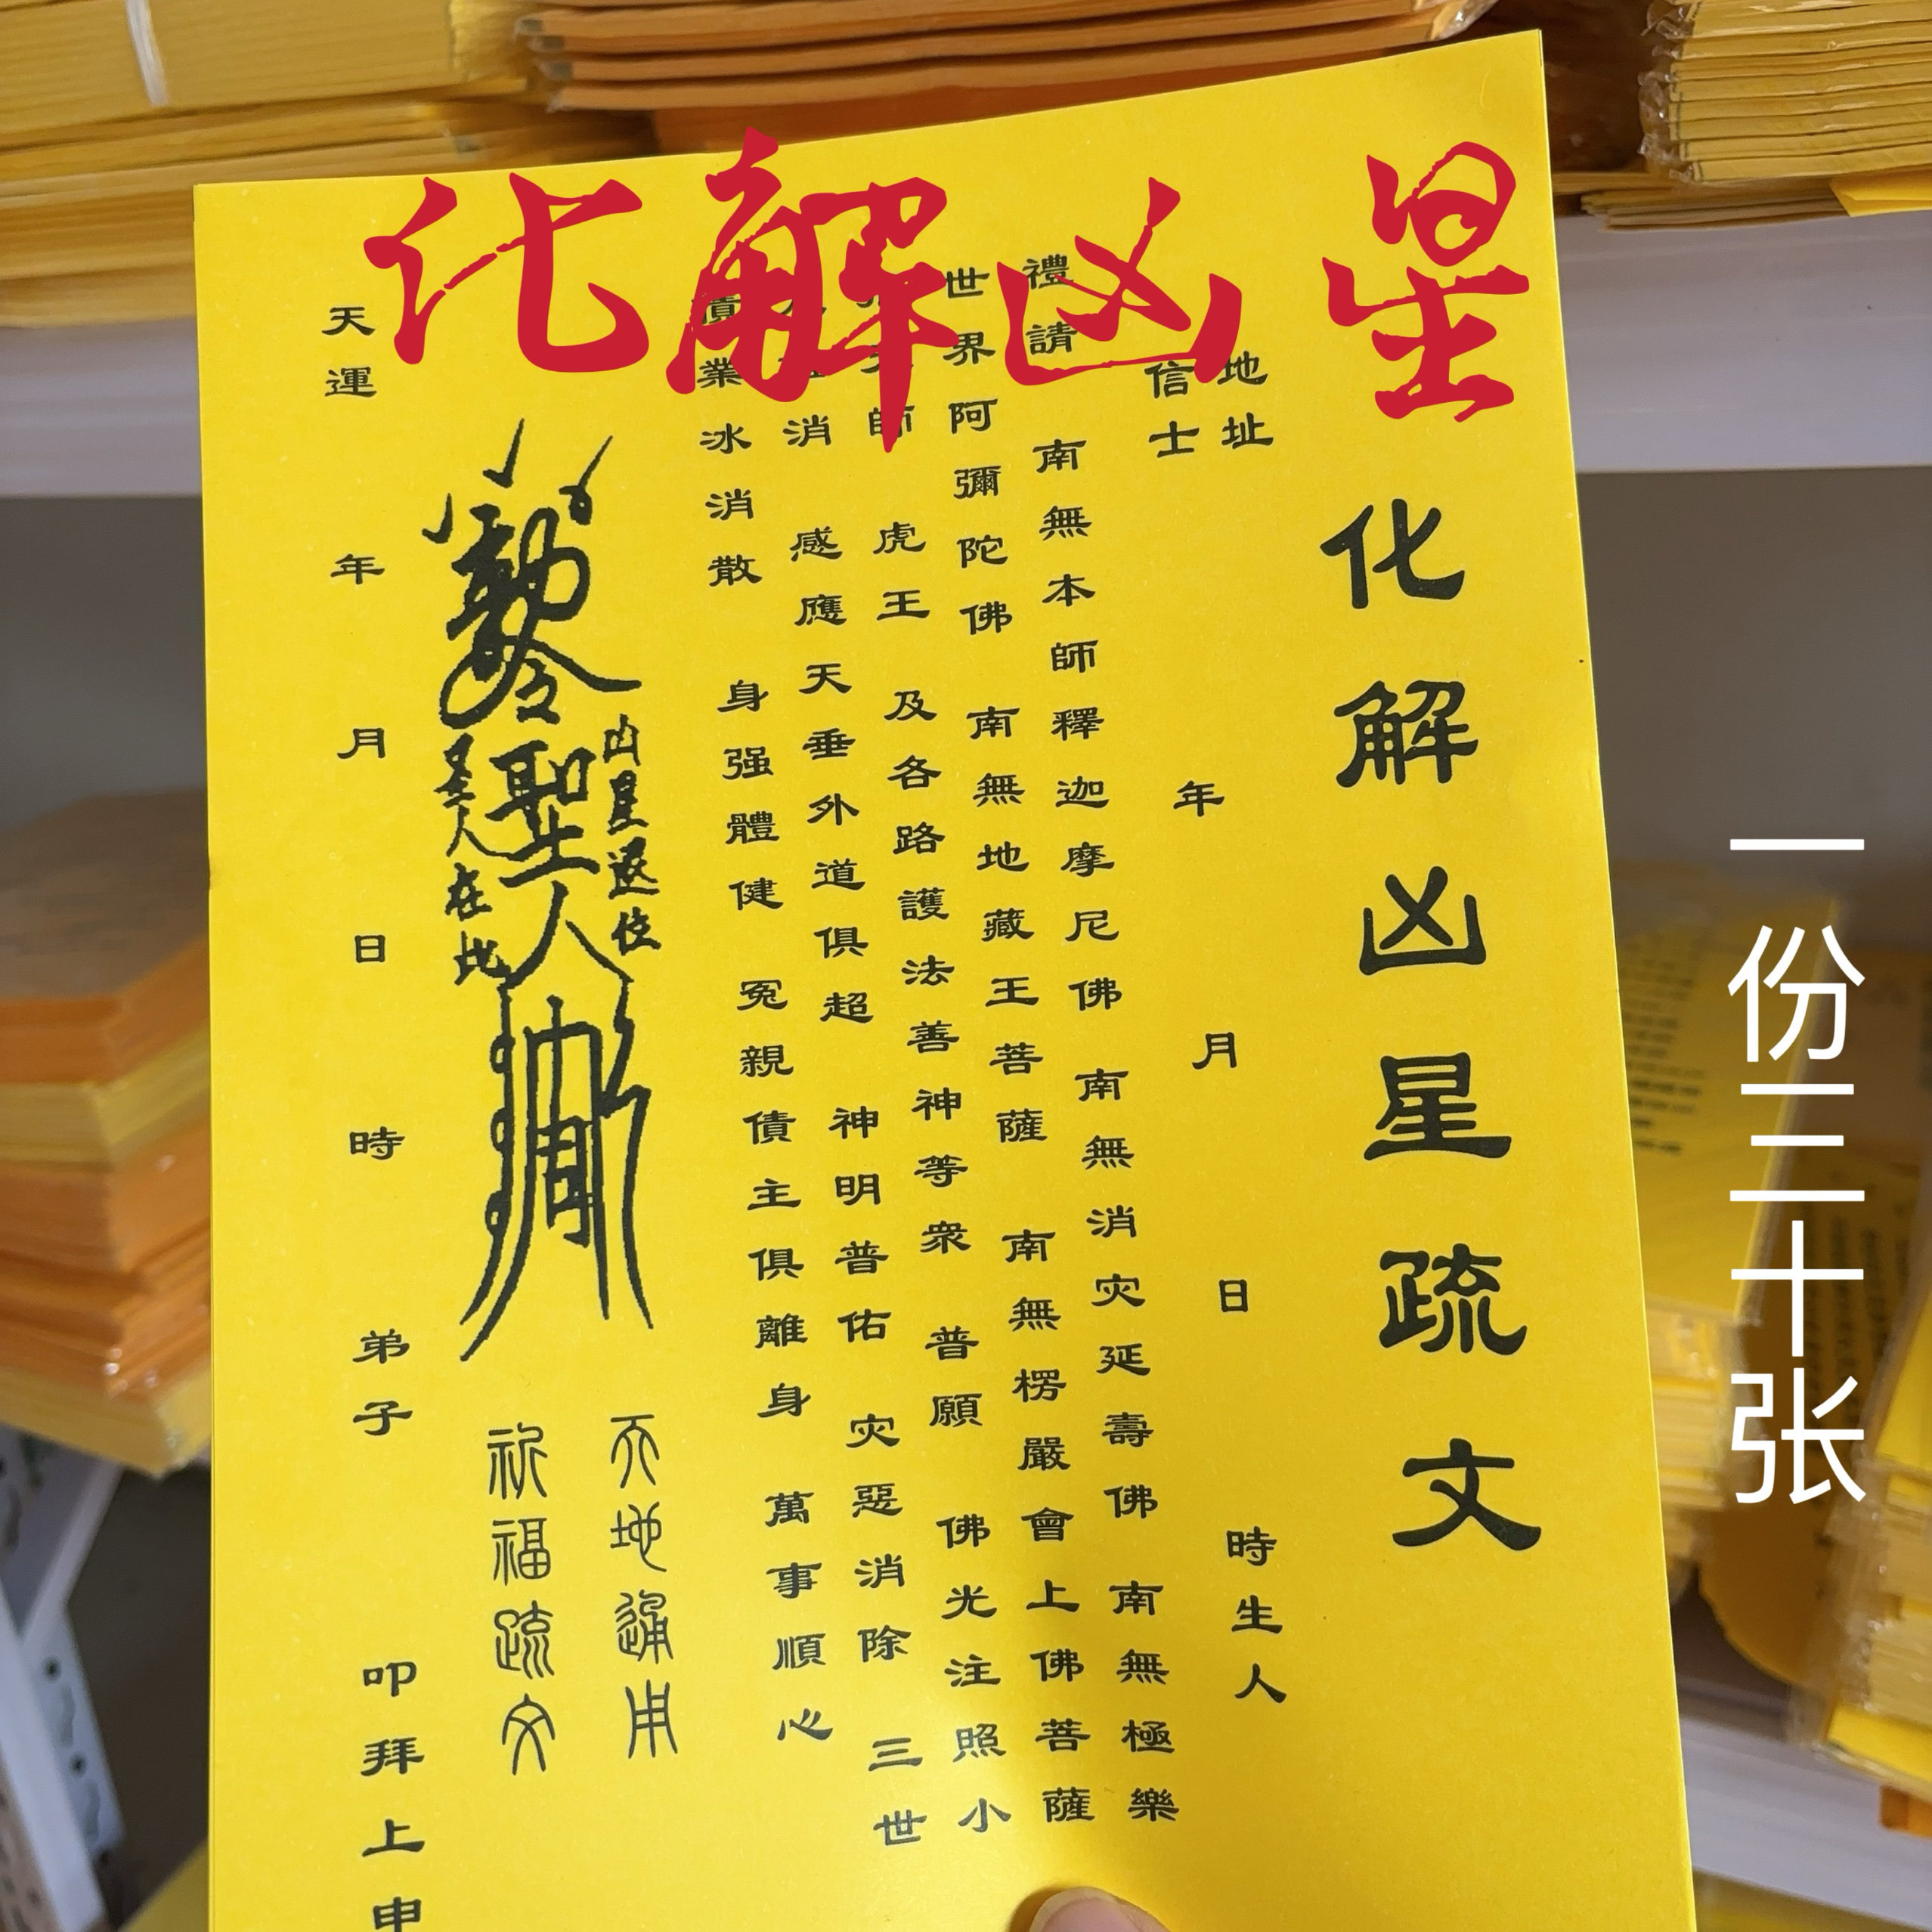 化解凶星
一份三十张
化解凶星疏文
地址
信士 年 月 日 時生人
禮請 南無本師釋迦摩尼佛 南無消灾延壽佛 南無極樂
世界阿彌陀佛 南無地藏王菩薩 南無楞嚴會上佛菩薩
師 虎王 及各路護法善神等衆 普願 佛光注照小
消 感應天垂外道俱超 神明普佑 灾惡消除 三世
債業冰消散 身强體健 冤親債主俱離身 萬事順心
凶星退位
聖人
在此
天地通用
祈福疏文
天運 年 月 日 時 弟子 叩拜上申